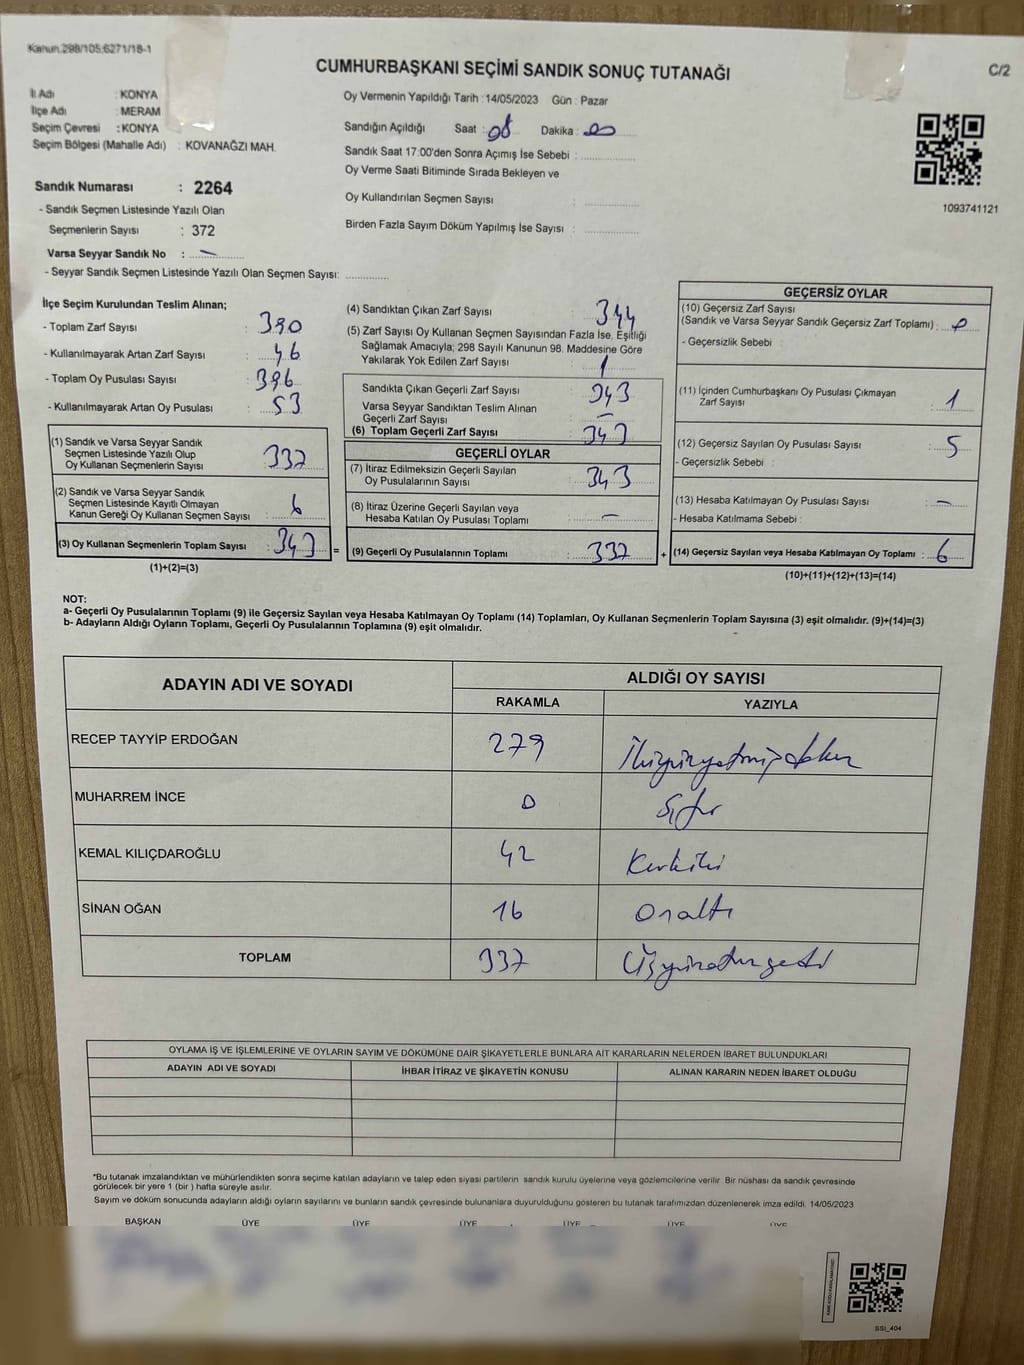 Kanun.298/105;6271/18-1
CUMHURBAŞKANI SEÇİMİ SANDIK SONUÇ TUTANAĞI
C/2
İl Adı : KONYA
İlçe Adı : MERAM
Seçim Çevresi : KONYA
Seçim Bölgesi (Mahalle Adı) : KOVANAĞZI MAH.
Oy Vermenin Yapıldığı Tarih : 14/05/2023 Gün : Pazar
Sandığın Açıldığı Saat : 08 Dakika : 00
Sandık Saat 17:00'den Sonra Açımış İse Sebebi :
Oy Verme Saati Bitiminde Sırada Bekleyen ve
Oy Kullandırılan Seçmen Sayısı :
Birden Fazla Sayım Döküm Yapılmış İse Sayısı :
1093741121
Sandık Numarası : 2264
- Sandık Seçmen Listesinde Yazılı Olan
Seçmenlerin Sayısı : 372
Varsa Seyyar Sandık No : —
- Seyyar Sandık Seçmen Listesinde Yazılı Olan Seçmen Sayısı:
İlçe Seçim Kurulundan Teslim Alınan;
- Toplam Zarf Sayısı : 390
- Kullanılmayarak Artan Zarf Sayısı : 46
- Toplam Oy Pusulası Sayısı : 396
- Kullanılmayarak Artan Oy Pusulası : 53
(1) Sandık ve Varsa Seyyar Sandık
Seçmen Listesinde Yazılı Olup
Oy Kullanan Seçmenlerin Sayısı : 337
(2) Sandık ve Varsa Seyyar Sandık
Seçmen Listesinde Kayıtlı Olmayan
Kanun Gereği Oy Kullanan Seçmen Sayısı : 6
(3) Oy Kullanan Seçmenlerin Toplam Sayısı : 343 =
(1)+(2)=(3)
(4) Sandıktan Çıkan Zarf Sayısı : 344
(5) Zarf Sayısı Oy Kullanan Seçmen Sayısından Fazla İse, Eşitliği
Sağlamak Amacıyla; 298 Sayılı Kanunun 98. Maddesine Göre
Yakılarak Yok Edilen Zarf Sayısı : 1
Sandıkta Çıkan Geçerli Zarf Sayısı : 343
Varsa Seyyar Sandıktan Teslim Alınan
Geçerli Zarf Sayısı : —
(6) Toplam Geçerli Zarf Sayısı : 343
GEÇERLİ OYLAR
(7) İtiraz Edilmeksizin Geçerli Sayılan
Oy Pusulalarının Sayısı : 343
(8) İtiraz Üzerine Geçerli Sayılan veya
Hesaba Katılan Oy Pusulası Toplamı : —
(9) Geçerli Oy Pusulalarının Toplamı : 337 +
GEÇERSİZ OYLAR
(10) Geçersiz Zarf Sayısı
(Sandık ve Varsa Seyyar Sandık Geçersiz Zarf Toplamı) : 0
- Geçersizlik Sebebi :
(11) İçinden Cumhurbaşkanı Oy Pusulası Çıkmayan
Zarf Sayısı : 1
(12) Geçersiz Sayılan Oy Pusulası Sayısı : 5
- Geçersizlik Sebebi :
(13) Hesaba Katılmayan Oy Pusulası Sayısı : —
- Hesaba Katılmama Sebebi :
(14) Geçersiz Sayılan veya Hesaba Katılmayan Oy Toplamı : 6
(10)+(11)+(12)+(13)=(14)
NOT:
a- Geçerli Oy Pusulalarının Toplamı (9) ile Geçersiz Sayılan veya Hesaba Katılmayan Oy Toplamı (14) Toplamları, Oy Kullanan Seçmenlerin Toplam Sayısına (3) eşit olmalıdır. (9)+(14)=(3)
b- Adayların Aldığı Oyların Toplamı, Geçerli Oy Pusulalarının Toplamına (9) eşit olmalıdır.
ADAYIN ADI VE SOYADI
ALDIĞI OY SAYISI
RAKAMLA YAZIYLA
RECEP TAYYİP ERDOĞAN 279 İkiyüzyetmişdokuz
MUHARREM İNCE 0 Sıfır
KEMAL KILIÇDAROĞLU 42 Kırkiki
SİNAN OĞAN 16 Onaltı
TOPLAM 337 Üçyüzotuzyedi
OYLAMA İŞ VE İŞLEMLERİNE VE OYLARIN SAYIM VE DÖKÜMÜNE DAİR ŞİKAYETLERLE BUNLARA AİT KARARLARIN NELERDEN İBARET BULUNDUKLARI
ADAYIN ADI VE SOYADI İHBAR İTİRAZ VE ŞİKAYETİN KONUSU ALINAN KARARIN NEDEN İBARET OLDUĞU
*Bu tutanak imzalandıktan ve mühürlendikten sonra seçime katılan adayların ve talep eden siyasi partilerin sandık kurulu üyelerine veya gözlemcilerine verilir. Bir nüshası da sandık çevresinde
görülecek bir yere 1 (bir ) hafta süreyle asılır.
Sayım ve döküm sonucunda adayların aldığı oyların sayılarını ve bunların sandık çevresinde bulunanlara duyurulduğunu gösteren bu tutanak tarafımızdan düzenlenerek imza edildi. 14/05/2023
BAŞKAN ÜYE ÜYE ÜYE ÜYE ÜYE ÜYE
SSI_404